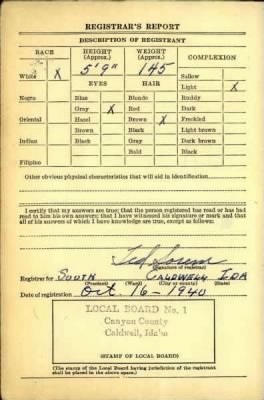 REGISTRAR'S REPORT
DESCRIPTION OF REGISTRANT
RACE HEIGHT (Approx.) WEIGHT (Approx.) COMPLEXION
5'9" 145 Sallow
White X EYES HAIR Light X
Negro Blue Blonde Ruddy
Gray X Red Dark
Oriental Hazel Brown X Freckled
Brown Black Light brown
Indian Black Gray Dark brown
Bald Black
Filipino
Other obvious physical characteristics that will aid in identification
I certify that my answers are true; that the person registered has read or has had
read to him his own answers; that I have witnessed his signature or mark and that
all of his answers of which I have knowledge are true, except as follows:
Ted
(Signature of registrar)
Registrar for SOUTH CALDWELL IDA
(Precinct) (Ward) (City or county) (State)
Date of registration Oct. 16-1940
LOCAL BOARD No. 1
Canyon County
Caldwell, Idaho
(STAMP OF LOCAL BOARD)
(The stamp of the Local Board having jurisdiction of the registrant
shall be placed in the above space.)